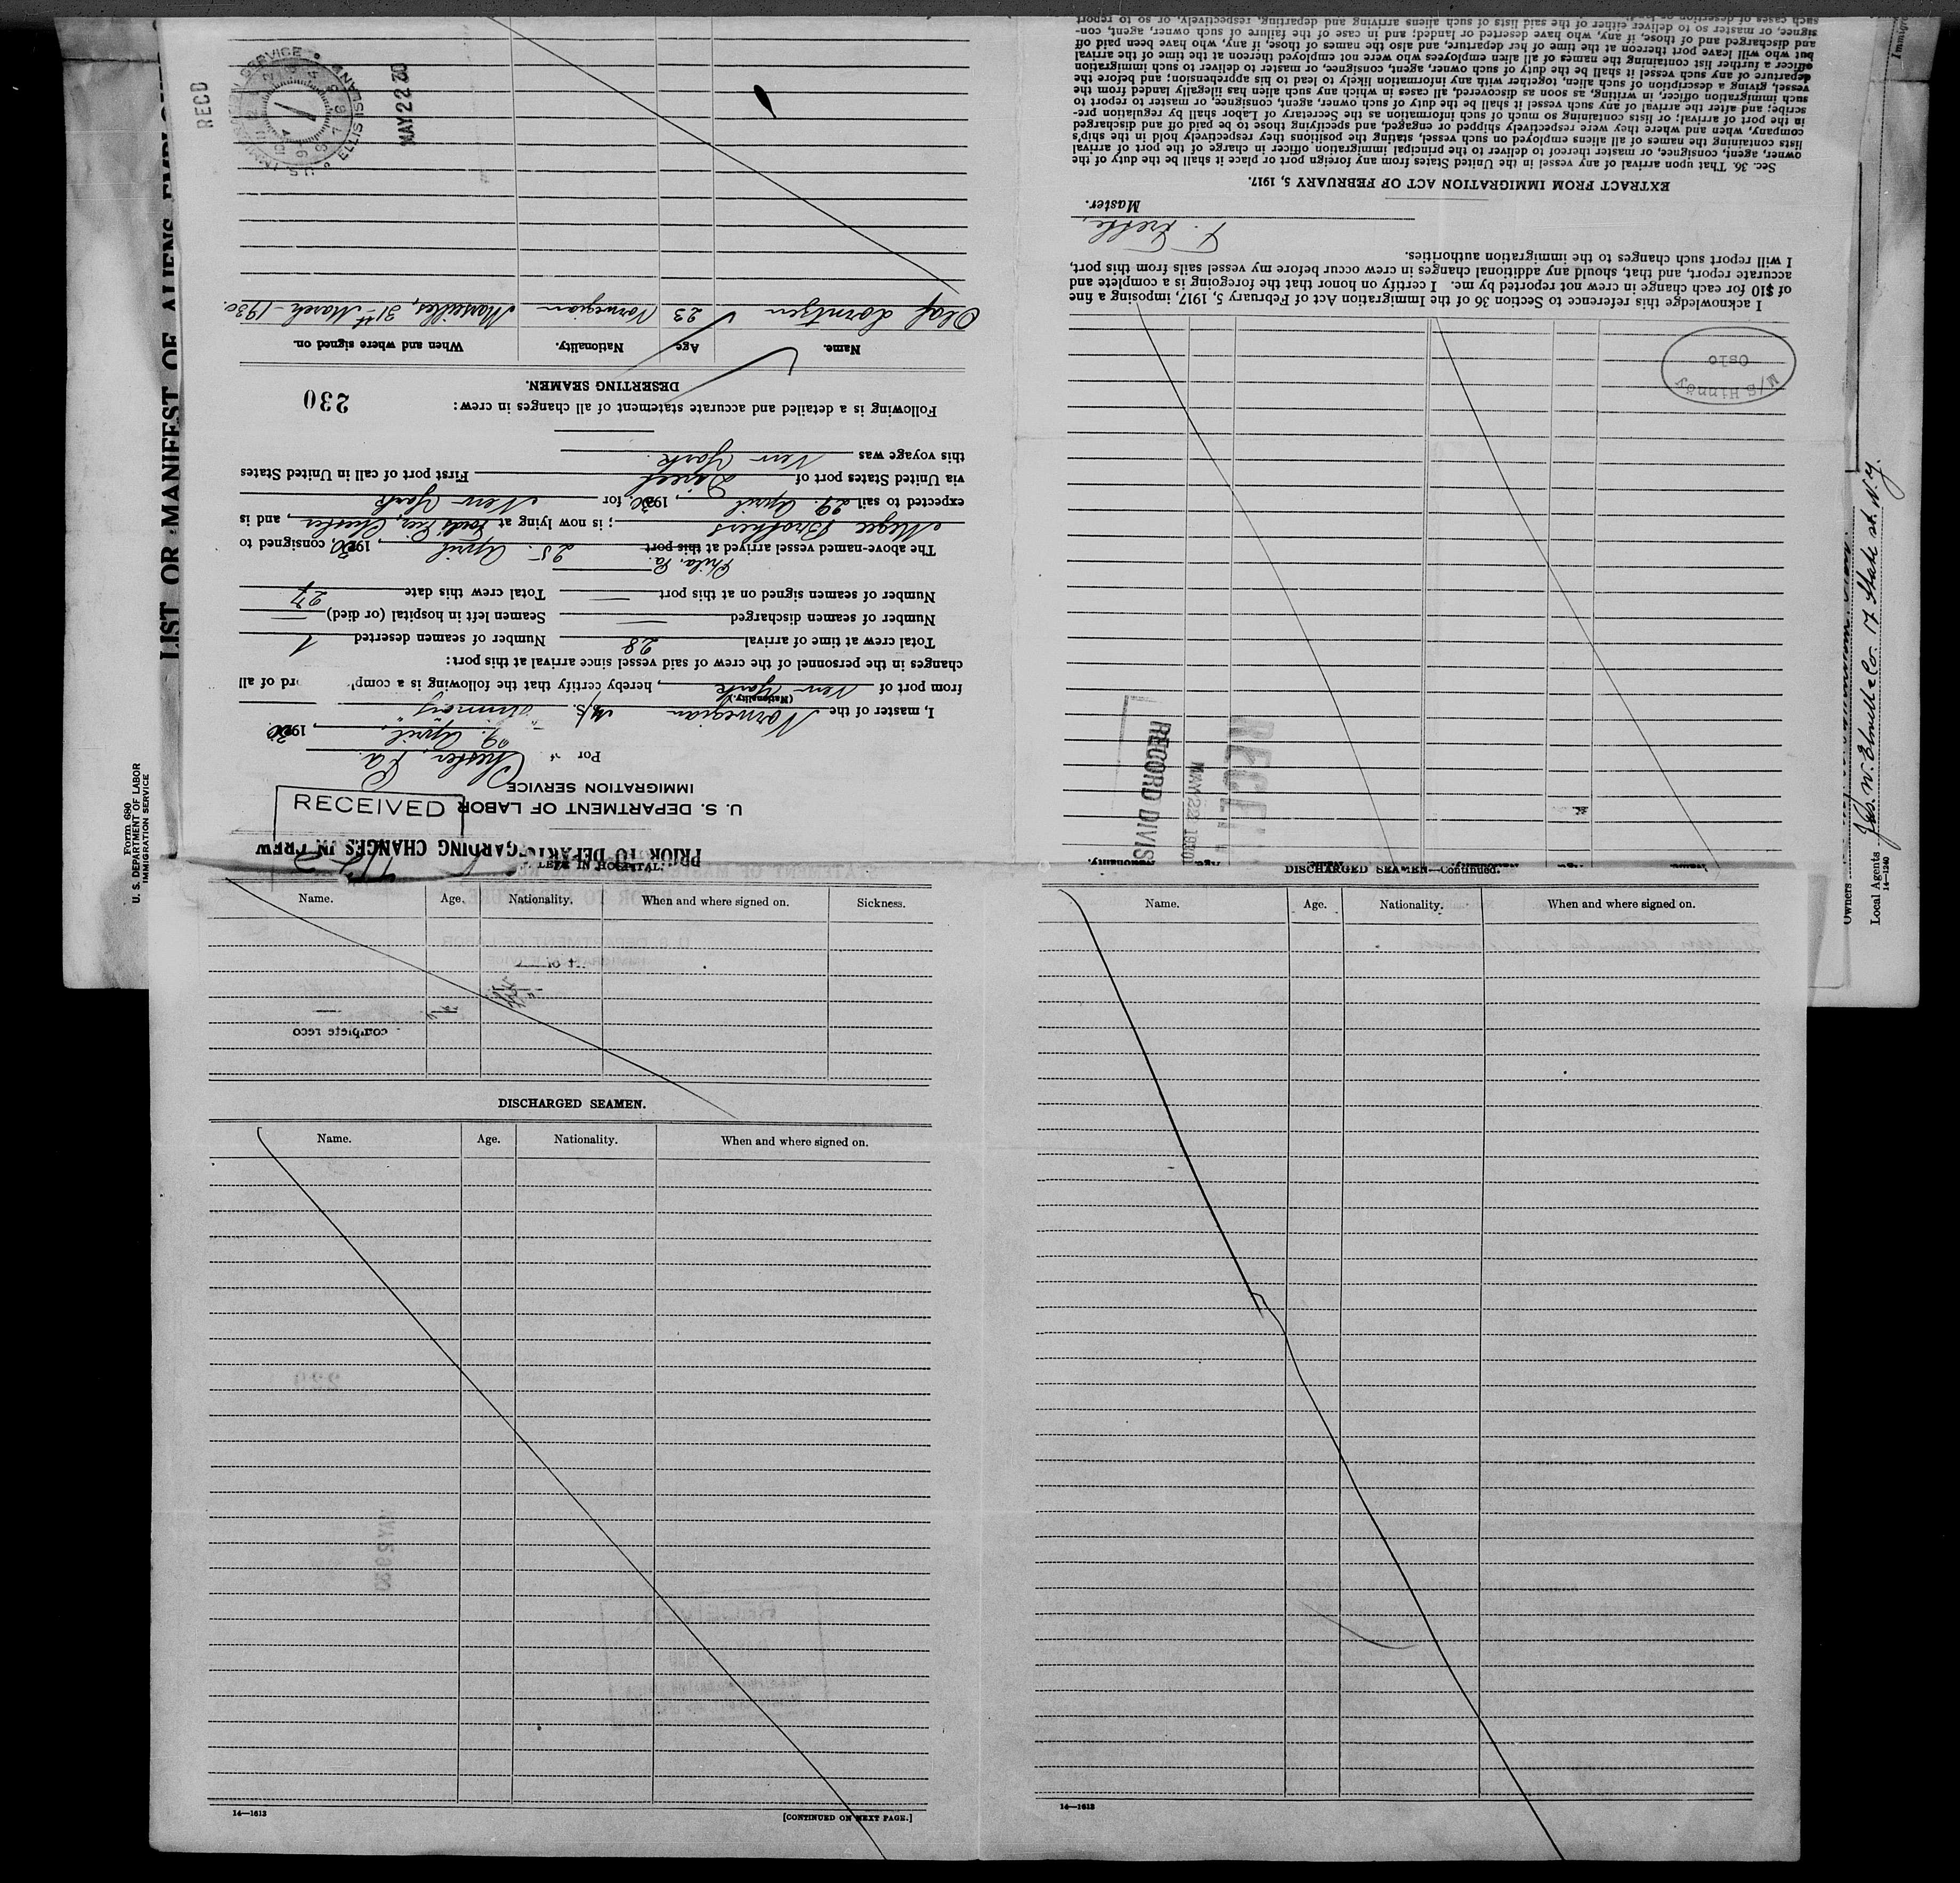 PRIOR TO DEPARTURE REGARDING CHANGES IN CREW
RECEIVED
U. S. DEPARTMENT OF LABOR
IMMIGRATION SERVICE
Chester, Pa.
29. April, 1930
I, master of the Norwegian M/S.
(Nationality.)
from port of New York, hereby certify that the following is a
changes in the personnel of the crew of said vessel since arrival at this port:
Total crew at time of arrival 28 Number of seamen deserted 1
Number of seamen discharged — Seamen left in hospital (or died) —
Number of seamen signed on at this port — Total crew this date 27
Phila. Pa.
The above-named vessel arrived at this port 25. April, 1930, consigned to
Magee Brothers; is now lying at Fords Pier, Chester, and is
expected to sail 29. April, 1930, for New York
via United States port of Direct First port of call in United States
this voyage was New York.
Following is a detailed and accurate statement of all changes in crew:
230
DESERTING SEAMEN.
Name. Age. Nationality. When and where signed on.
Olaf Lorntzen 23 Norwegian Marseilles, 31st March - 1930.
RECD
MAY 22 30
U.S. IMMIGRATION SERVICE ELLIS ISLAND
M/S Hinnöy
Oslo
RECORD DIVIS
MAY 22 1930
I acknowledge this reference to Section 36 of the Immigration Act of February 5, 1917, imposing a fine
of $10 for each change in crew not reported by me. I certify on honor that the foregoing is a complete and
accurate report, and that, should any additional changes in crew occur before my vessel sails from this port,
I will report such changes to the immigration authorities.
Master.
EXTRACT FROM IMMIGRATION ACT OF FEBRUARY 5, 1917.
Sec. 36. That upon arrival of any vessel in the United States from any foreign port or place it shall be the duty of the
owner, agent, consignee, or master thereof to deliver to the principal immigration officer in charge of the port of arrival
lists containing the names of all aliens employed on such vessel, stating the positions they respectively hold in the ship's
company, when and where they were respectively shipped or engaged, and specifying those to be paid off and discharged
in the port of arrival; or lists containing so much of such information as the Secretary of Labor shall by regulation pre-
scribe; and after the arrival of any such vessel it shall be the duty of such owner, agent, consignee, or master to report to
such immigration officer, in writing, as soon as discovered, all cases in which any such alien has illegally landed from the
vessel, giving a description of such alien, together with any information likely to lead to his apprehension; and before the
departure of any such vessel it shall be the duty of such owner, agent, consignee, or master to deliver to such immigration
officer a further list containing the names of all alien employees who were not employed thereon at the time of the arrival
but who will leave port thereon at the time of her departure, and also the names of those, if any, who have been paid off
and discharged and of those, if any, who have deserted or landed; and in case of the failure of such owner, agent, con-
signee, or master so to deliver either of the said lists of such aliens arriving and departing, respectively, or so to report
such cases of desertion or
LIST OR MANIFEST OF ALIENS
Form 680
U. S. DEPARTMENT OF LABOR
IMMIGRATION SERVICE
Owners
Local Agents Jas. W. Elwell & Co. 17 State st. N.Y.
14—1240
LEFT IN HOSPITAL.
Name. Age. Nationality. When and where signed on. Sickness.
complete reco
DISCHARGED SEAMEN.
Name. Age. Nationality. When and where signed on.
14—1613
[CONTINUED ON NEXT PAGE.]
DISCHARGED SEAMEN—Continued.
Name. Age. Nationality. When and where signed on.
14—1613